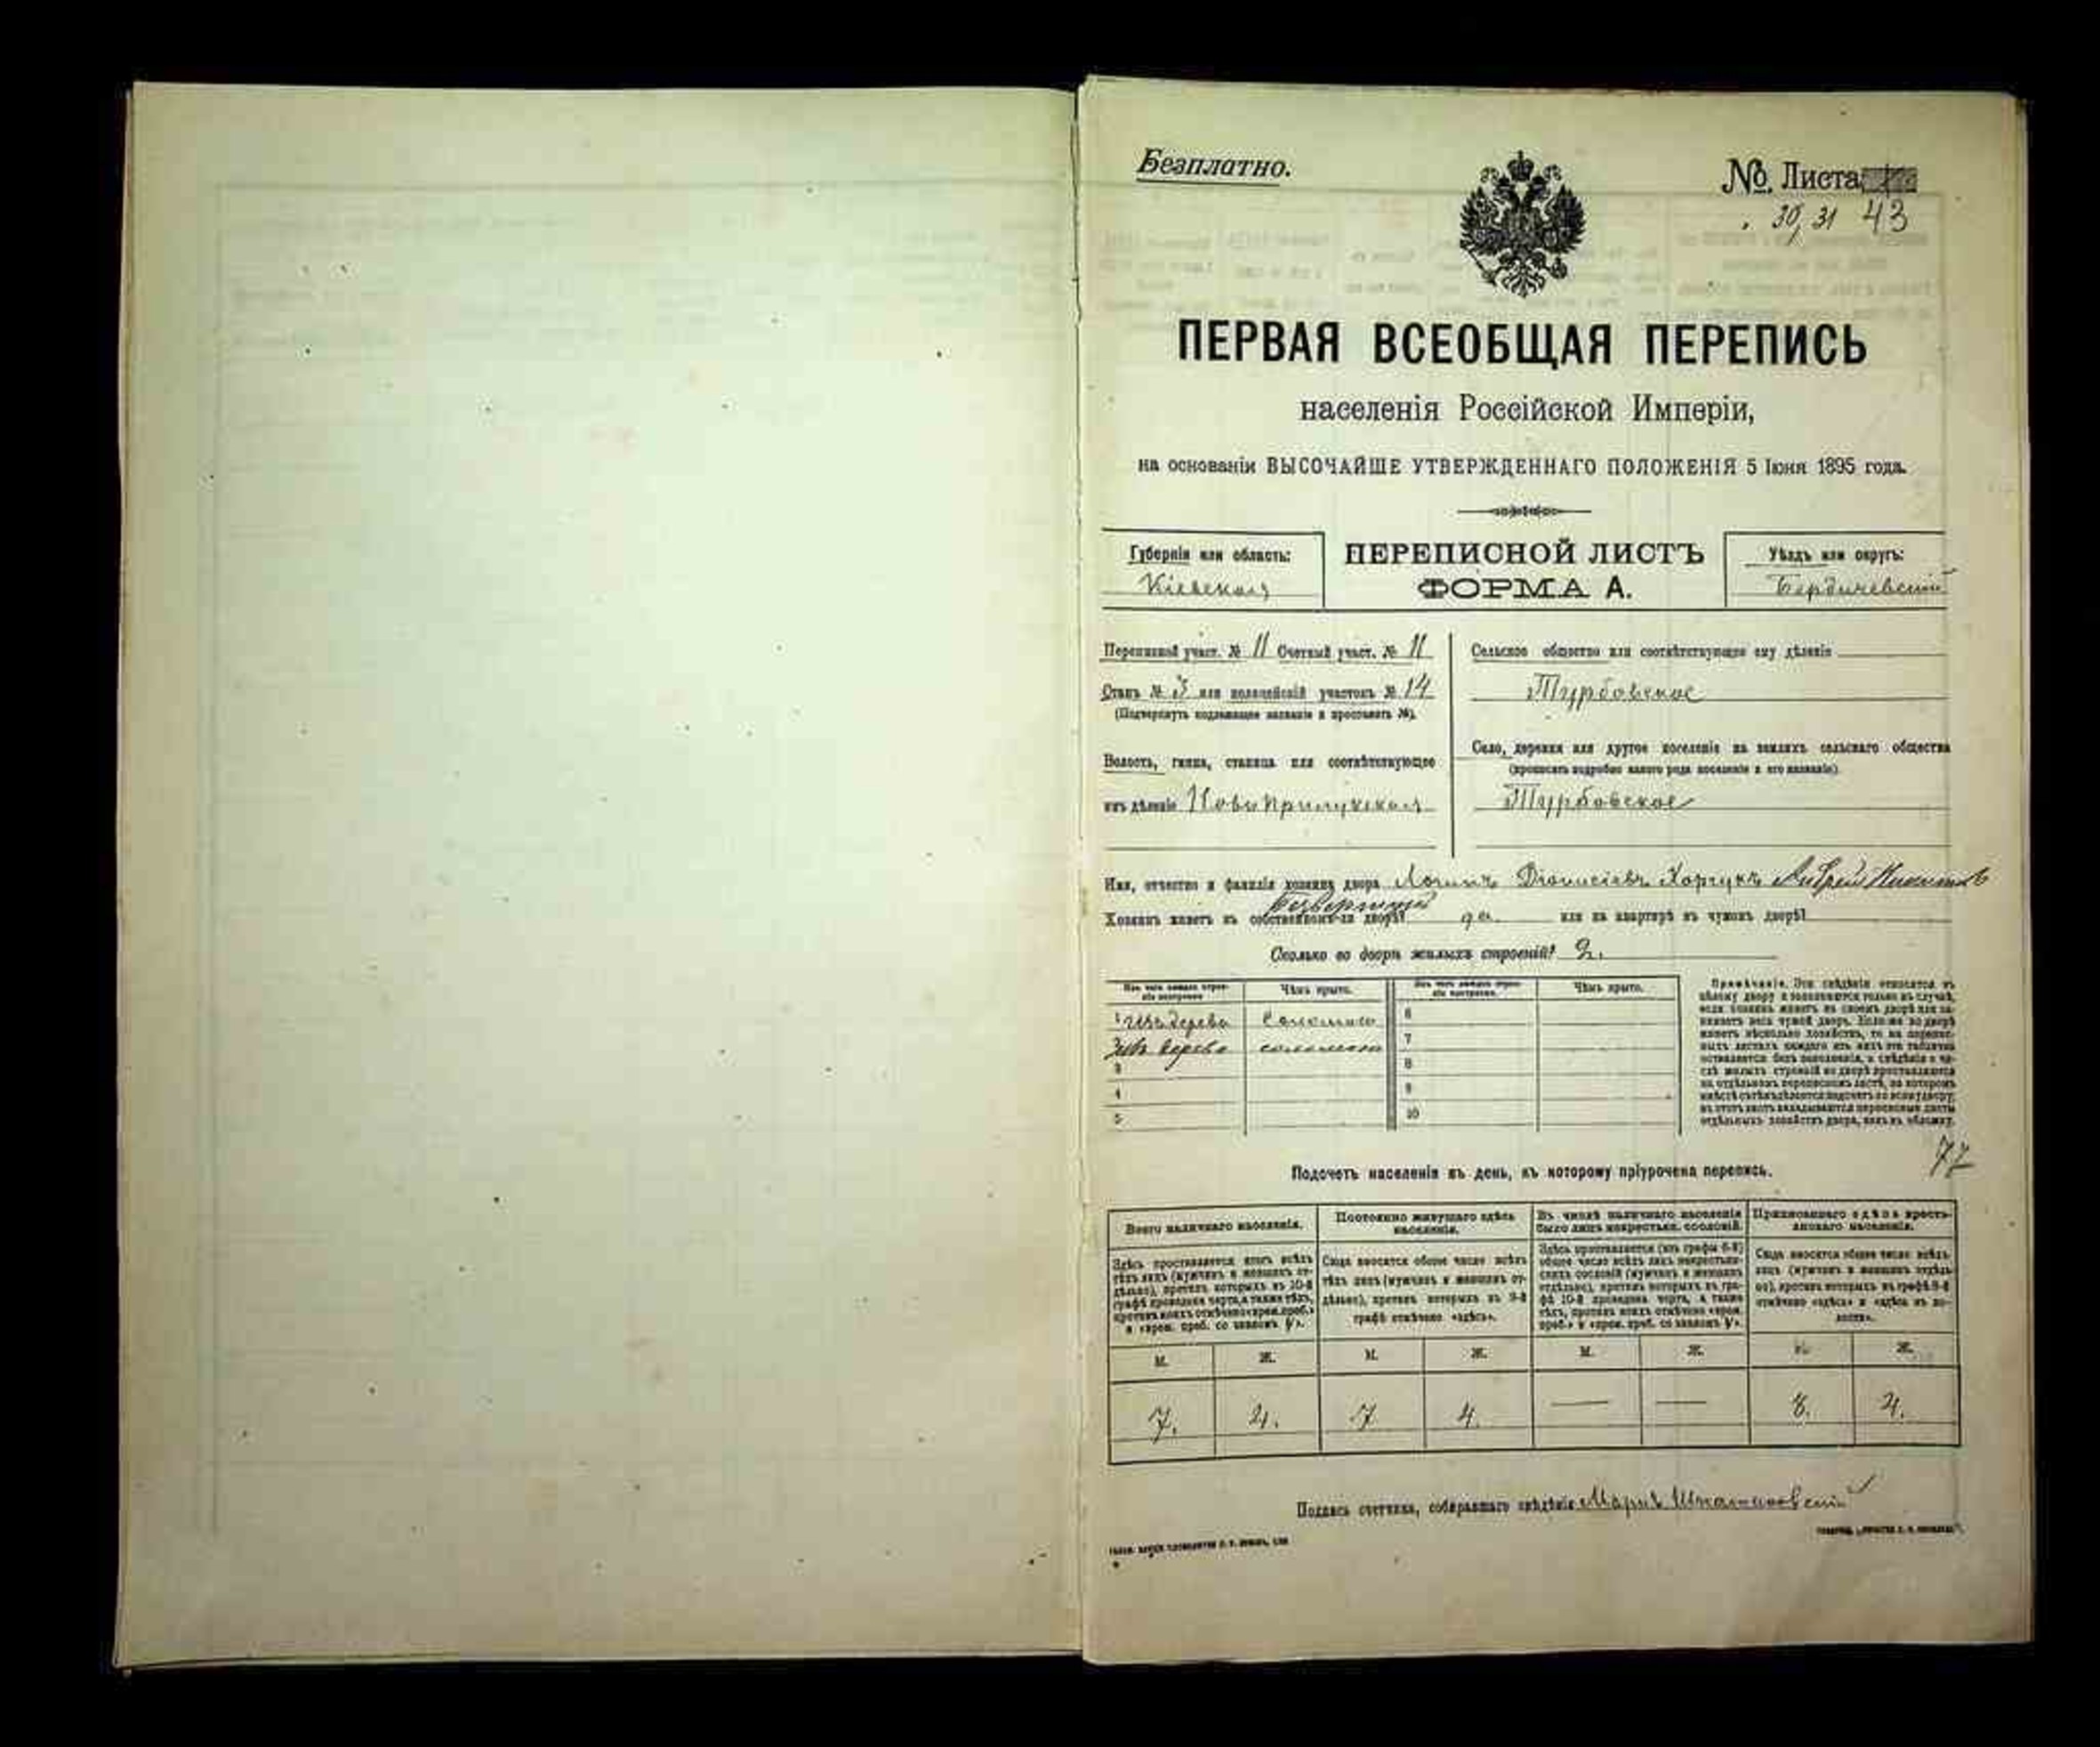 Безплатно.
№. Листа
30, 31 43
ПЕРВАЯ ВСЕОБЩАЯ ПЕРЕПИСЬ
населенія Россійской Имперіи,
на основаніи ВЫСОЧАЙШЕ УТВЕРЖДЕННАГО ПОЛОЖЕНІЯ 5 Іюня 1895 года.
Губернія или область:
Кіевская
ПЕРЕПИСНОЙ ЛИСТЪ
ФОРМА А.
Уѣздъ или округъ:
Бердичевскій
Переписной участ. № 11 Счетный участ. № 11
Станъ № 3 или полицейскій участокъ № 14
(Подчеркнуть подлежащее названіе и проставить №).
Волость, гмина, станица или соотвѣтствующее
имъ дѣленіе Новоприлукская
Сельское общество или соотвѣтствующее ему дѣленіе
Турбовское
Село, деревня или другое поселеніе на земляхъ сельскаго общества
(прописать подробно какого рода поселеніе и его названіе).
Турбовское
Имя, отчество и фамилія хозяина двора Логинъ Діонисіевъ Андрей
Хозяинъ живетъ въ собственномъ-ли дворѣ? да или на квартирѣ въ чужомъ дворѣ?
Сколько во дворѣ жилыхъ строеній? 2.
Изъ чего каждое строеніе построено. Чѣмъ крыто. Изъ чего каждое строеніе построено. Чѣмъ крыто.
1 изъ дерева соломою 6
изъ дерева соломою 7
3 8
4 9
5 10
Примѣчаніе. Эти свѣдѣнія относятся къ
цѣлому двору и заполняются только въ случаѣ,
если хозяинъ живетъ въ своемъ дворѣ или занимаетъ
весь чужой дворъ. Если же во дворѣ
живетъ нѣсколько хозяйствъ, то на переписныхъ
листахъ каждаго изъ нихъ эта табличка
оставляется безъ заполненія, а свѣдѣнія о числѣ
жилыхъ строеній во дворѣ проставляются
на отдѣльномъ переписномъ листѣ, на которомъ
вмѣстѣ съ тѣмъ дѣлается подсчетъ по всему двору;
въ этотъ листъ вкладываются переписные листы
отдѣльныхъ хозяйствъ двора, какъ въ обложку.
77
Подсчетъ населенія въ день, къ которому пріурочена перепись.
Всего наличнаго населенія.
Здѣсь проставляется итогъ всѣхъ
тѣхъ лицъ (мужчинъ и женщинъ отдѣльно),
противъ которыхъ въ 10-й
графѣ проведена черта, а также тѣхъ,
противъ коихъ отмѣчено «врем. преб.»
и «врем. преб. со знакомъ V».
Постоянно живущаго здѣсь
населенія.
Сюда вносится общее число всѣхъ
тѣхъ лицъ (мужчинъ и женщинъ отдѣльно),
противъ которыхъ въ 9-й
графѣ отмѣчено «здѣсь».
Въ числѣ наличнаго населенія
было лицъ некрестьян. сословій.
Здѣсь проставляется (изъ графы 6-й)
общее число всѣхъ лицъ некрестьянскихъ
сословій (мужчинъ и женщинъ
отдѣльно), противъ которыхъ въ графѣ
10-й проведена черта, а также
тѣхъ, противъ коихъ отмѣчено «врем.
преб.» и «врем. преб. со знакомъ V».
Приписаннаго здѣсь крестьянскаго
населенія.
Сюда вносится общее число всѣхъ
лицъ (мужчинъ и женщинъ отдѣльно),
противъ которыхъ въ графѣ 8-й
отмѣчено «здѣсь» и «здѣсь въ волости».
М. Ж. М. Ж. М. Ж. М. Ж.
7. 4. 7 4. — — 8. 4.
Подпись счетчика, собиравшаго свѣдѣнія